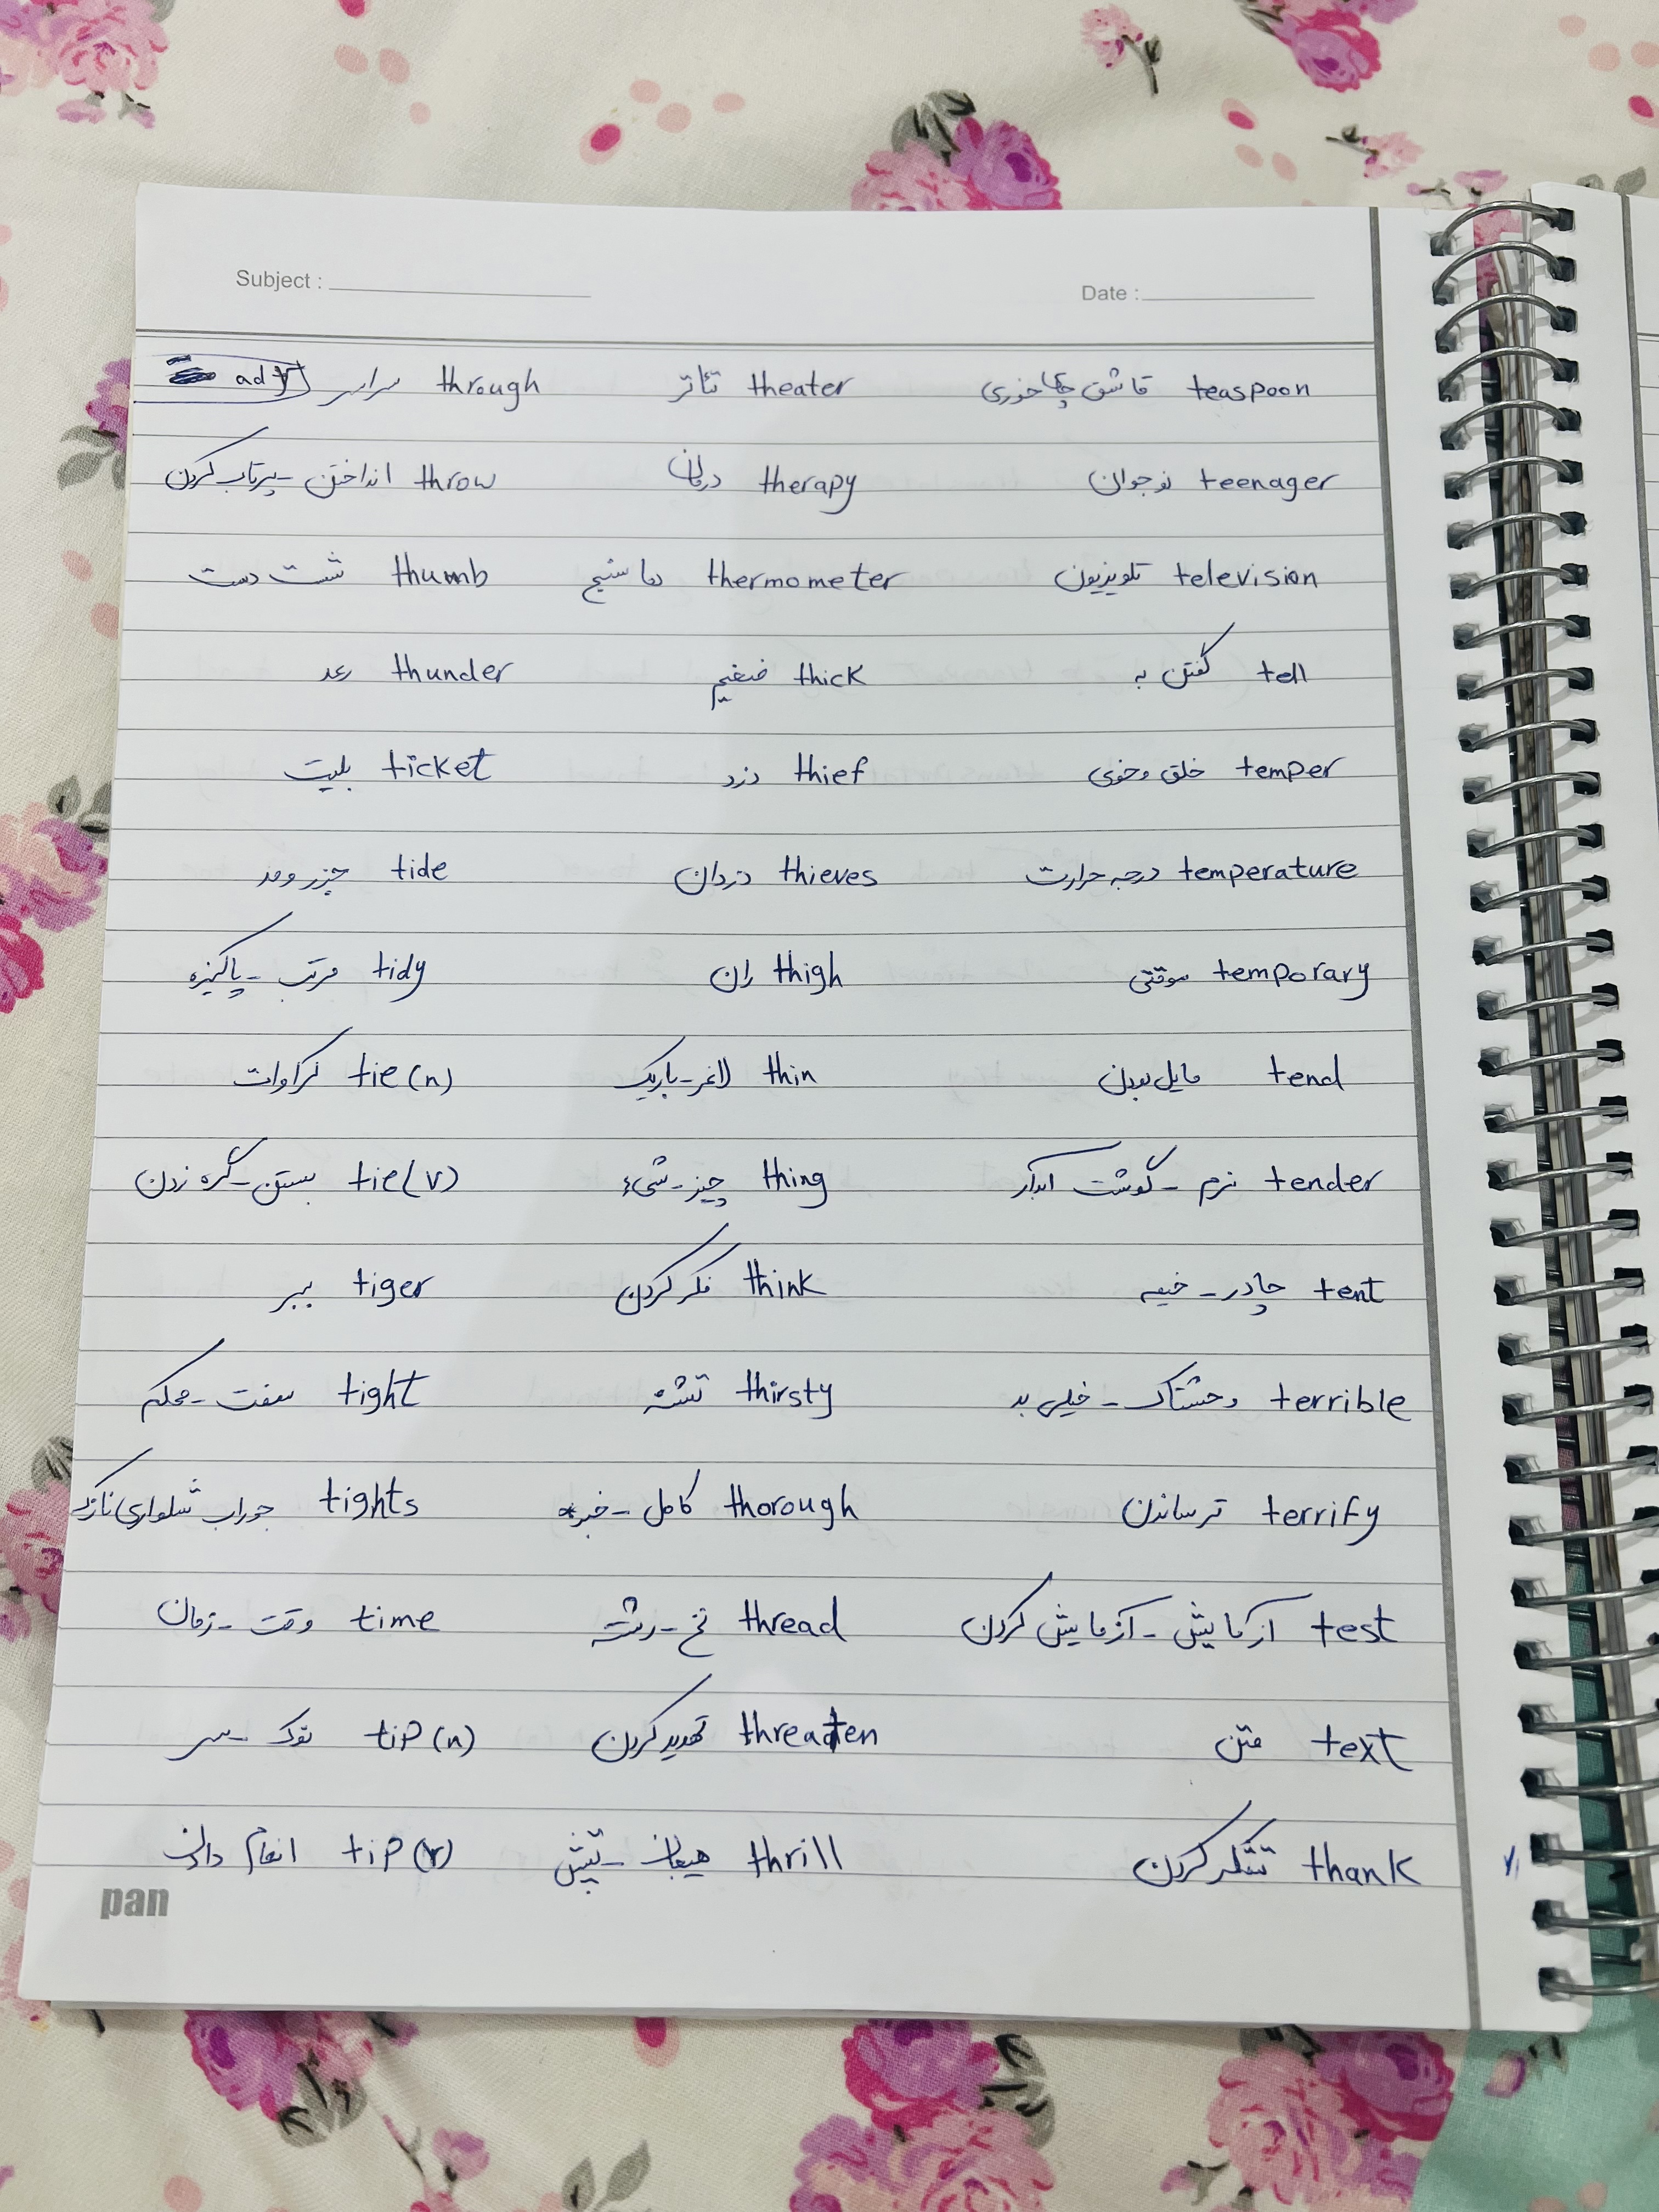 Subject :
Date :
teaspoon قاشق چایخوری theater تئاتر through سراسر adv
teenager نوجوان therapy درمان throw انداختن - پرتاب کردن
television تلویزیون thermometer دما سنج thumb شست دست
tell گفتن به thick ضخیم thunder رعد
temper خلق و خوی thief دزد ticket بلیت
temperature درجه حرارت thieves دزدان tide جزر و مد
temporary موقتی thigh ران tidy مرتب - پاکیزه
tend مایل بودن thin لاغر - باریک tie (n) کراوات
tender نرم - گوشت آبدار thing چیز - شیء tie (v) بستن - گره زدن
tent چادر - خیمه think فکر کردن tiger ببر
terrible وحشتناک - خیلی بد thirsty تشنه tight سفت - محکم
terrify ترساندن thorough کامل - خبره tights جوراب شلواری نازک
test آزمایش - آزمایش کردن thread نخ - رشته time وقت - زمان
text متن threaten تهدید کردن tip (n) نوک - سر
thank تشکر کردن thrill هیجان - تپش tip (v) انعام دادن
pan